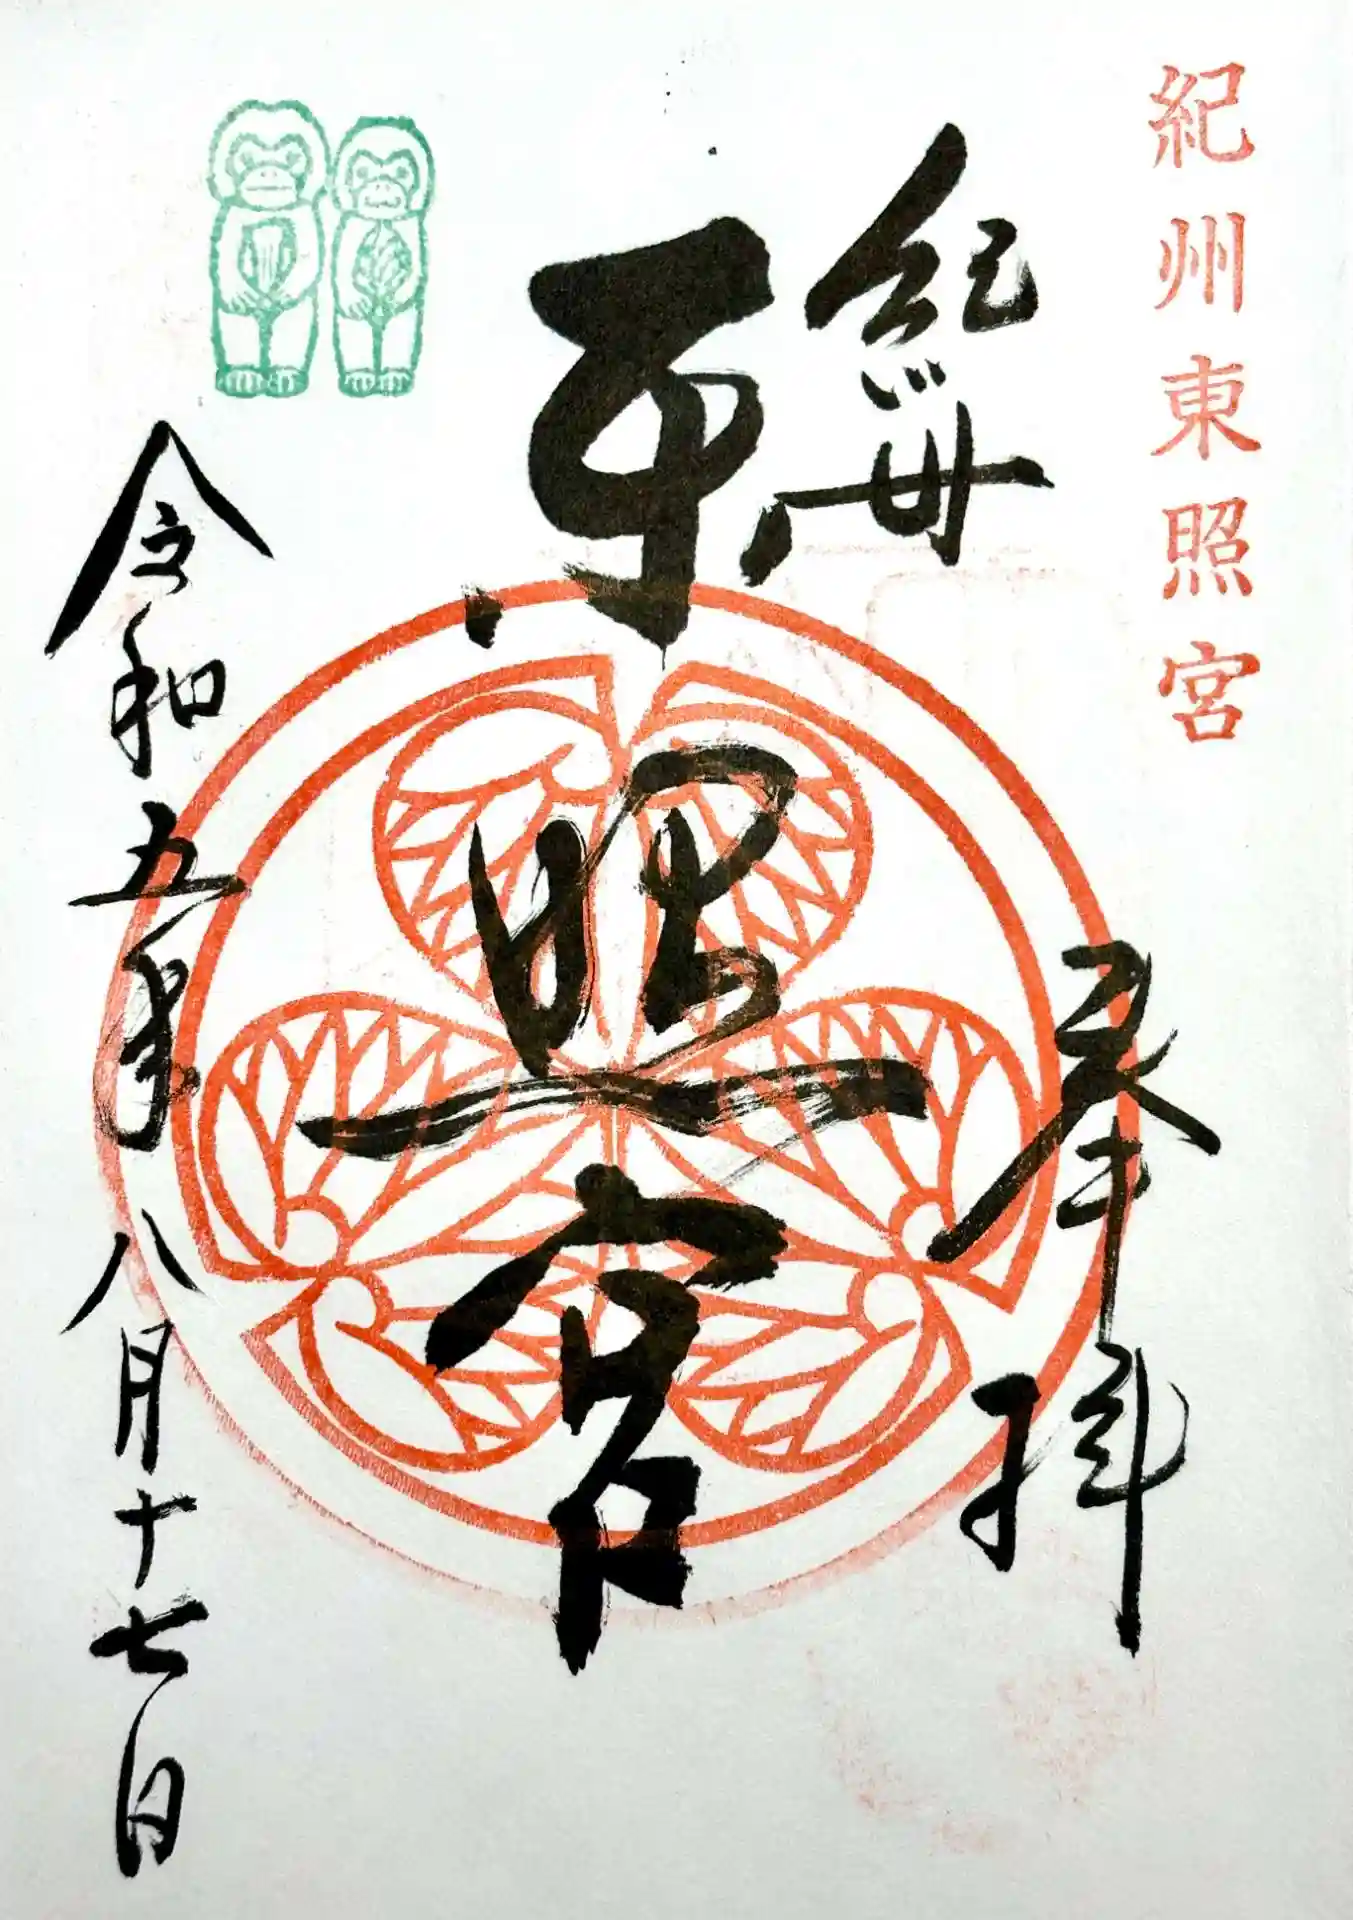 紀州東照宮
奉拝
紀州
東照宮
令和五年八月十七日